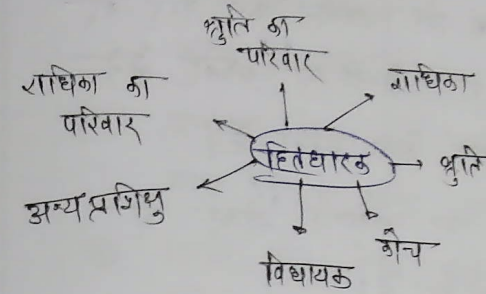 श्रुति का
परिवार
राधिका का
परिवार
राधिका
हितधारक
श्रुति
अन्य प्रशिक्षु
कोच
विधायक